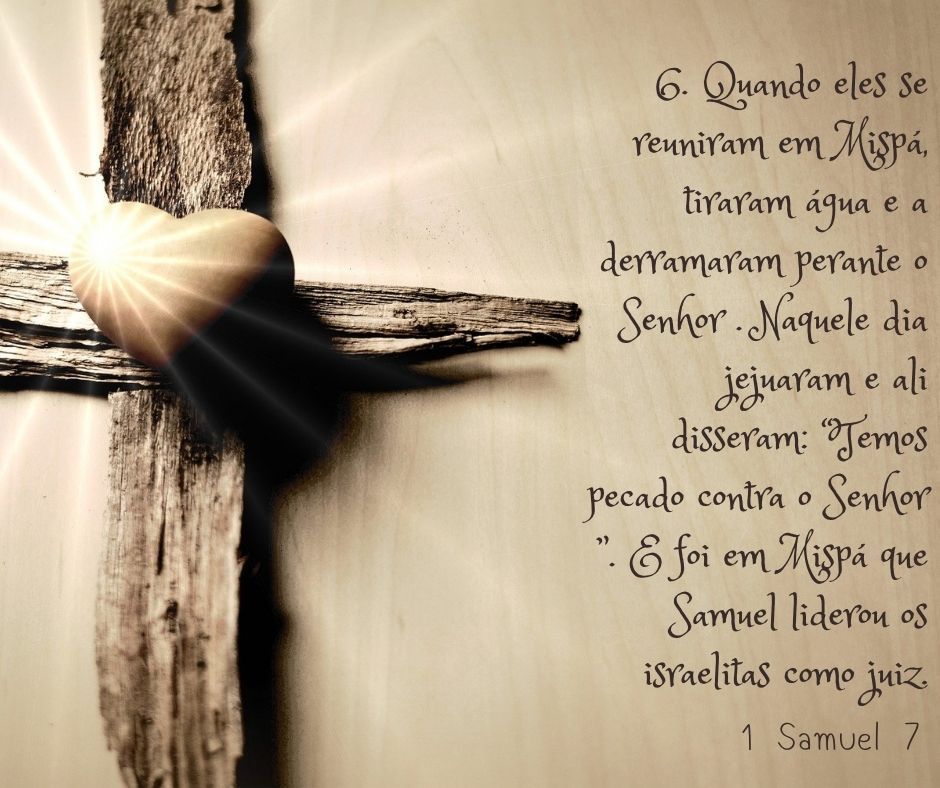 6. Quando eles se
reuniram em Mispá,
tiraram água e a
derramaram perante o
Senhor . Naquele dia
jejuaram e ali
disseram: “Temos
pecado contra o Senhor
”. E foi em Mispá que
Samuel liderou os
israelitas como juiz.
1 Samuel 7